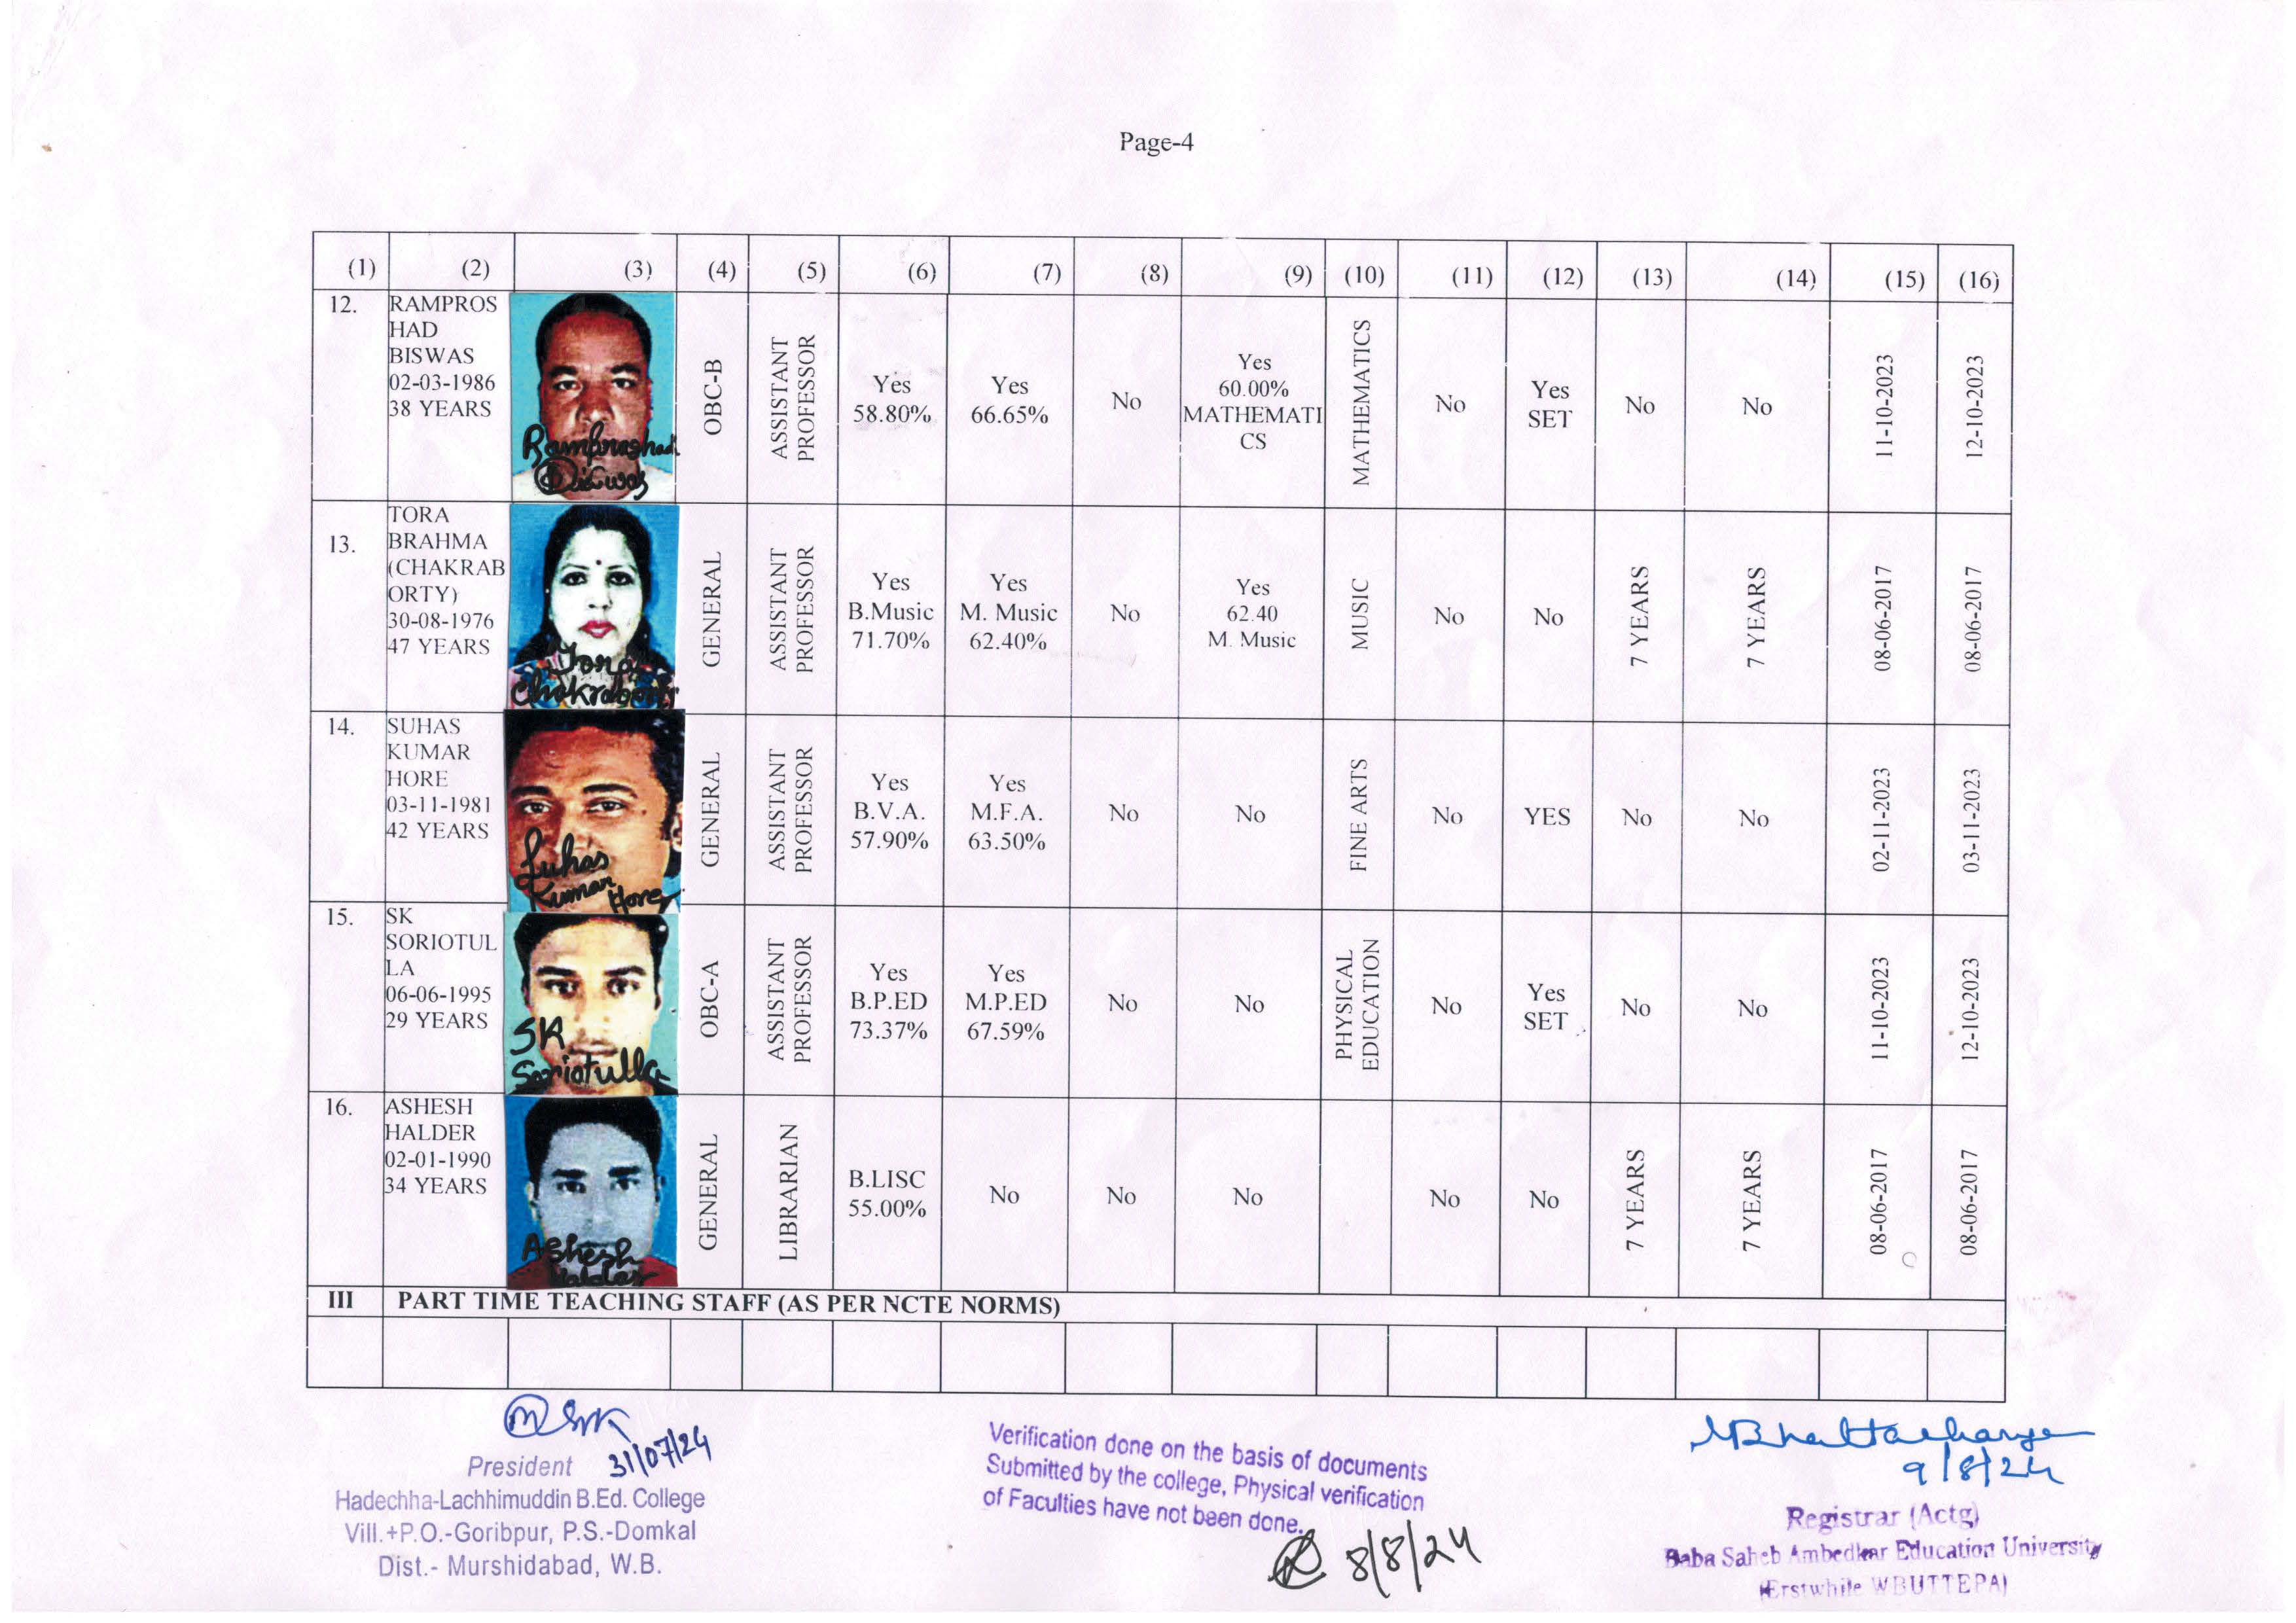 Page-4
(1) (2) (3) (4) (5) (6) (7) (8) (9) (10) (11) (12) (13) (14) (15) (16)
12.
RAMPROS
HAD
BISWAS
02-03-1986
38 YEARS
Ramproshad
Biswas
OBC-B
ASSISTANT
PROFESSOR
Yes
58.80%
Yes
66.65%
No
Yes
60.00%
MATHEMATI
CS
MATHEMATICS
No
Yes
SET
No
No
11-10-2023
12-10-2023
13.
TORA
BRAHMA
(CHAKRAB
ORTY)
30-08-1976
47 YEARS
Tora
Chakraborty
GENERAL
ASSISTANT
PROFESSOR
Yes
B.Music
71.70%
Yes
M. Music
62.40%
No
Yes
62.40
M. Music
MUSIC
No
No
7 YEARS
7 YEARS
08-06-2017
08-06-2017
14.
SUHAS
KUMAR
HORE
03-11-1981
42 YEARS
Suhas
Kumar Hore
GENERAL
ASSISTANT
PROFESSOR
Yes
B.V.A.
57.90%
Yes
M.F.A.
63.50%
No
No
FINE ARTS
No
YES
No
No
02-11-2023
03-11-2023
15.
SK
SORIOTUL
LA
06-06-1995
29 YEARS
SK
Soriotulla
OBC-A
ASSISTANT
PROFESSOR
Yes
B.P.ED
73.37%
Yes
M.P.ED
67.59%
No
No
PHYSICAL
EDUCATION
No
Yes
SET
No
No
11-10-2023
12-10-2023
16.
ASHESH
HALDER
02-01-1990
34 YEARS
Ashesh
Halder
GENERAL
LIBRARIAN
B.LISC
55.00%
No
No
No
No
No
7 YEARS
7 YEARS
08-06-2017
08-06-2017
III PART TIME TEACHING STAFF (AS PER NCTE NORMS)
31/07/24
President
Hadechha-Lachhimuddin B.Ed. College
Vill.+P.O.-Goribpur, P.S.-Domkal
Dist.- Murshidabad, W.B.
Verification done on the basis of documents
Submitted by the college, Physical verification
of Faculties have not been done.
8/8/24
Bhattacharya
9/8/24
Registrar (Actg)
Baba Saheb Ambedkar Education University
(Erstwhile WBUTTEPA)